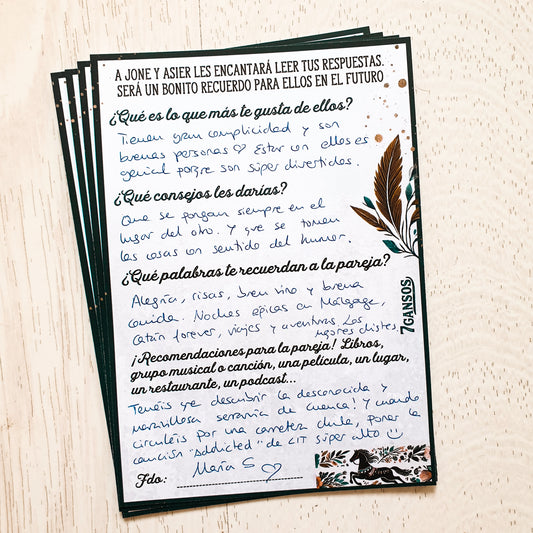 A JONE Y ASIER LES ENCANTARÁ LEER TUS RESPUESTAS.
SERÁ UN BONITO RECUERDO PARA ELLOS EN EL FUTURO
¿Qué es lo que más te gusta de ellos?
Tienen gran complicidad y son
buenas personas ♡ Estar con ellos es
genial porque son súper divertidos.
¿Qué consejos les darías?
Que se pongan siempre en el
lugar del otro. Y que se tomen
las cosas con sentido del humor.
¿Qué palabras te recuerdan a la pareja?
Alegría, risas, buen vino y buena
comida. Noches épicas en
forever, viajes y aventuras. Los
mejores chistes.
¡Recomendaciones para la pareja! Libros,
grupo musical o canción, una película, un lugar,
un restaurante, un podcast...
Tenéis que descubrir la desconocida y
maravillosa serranía de Cuenca! Y cuando
circuléis por una carretera chula, poner la
canción "Addicted" de súper alto
Fdo: María S ♡
7GANSOS